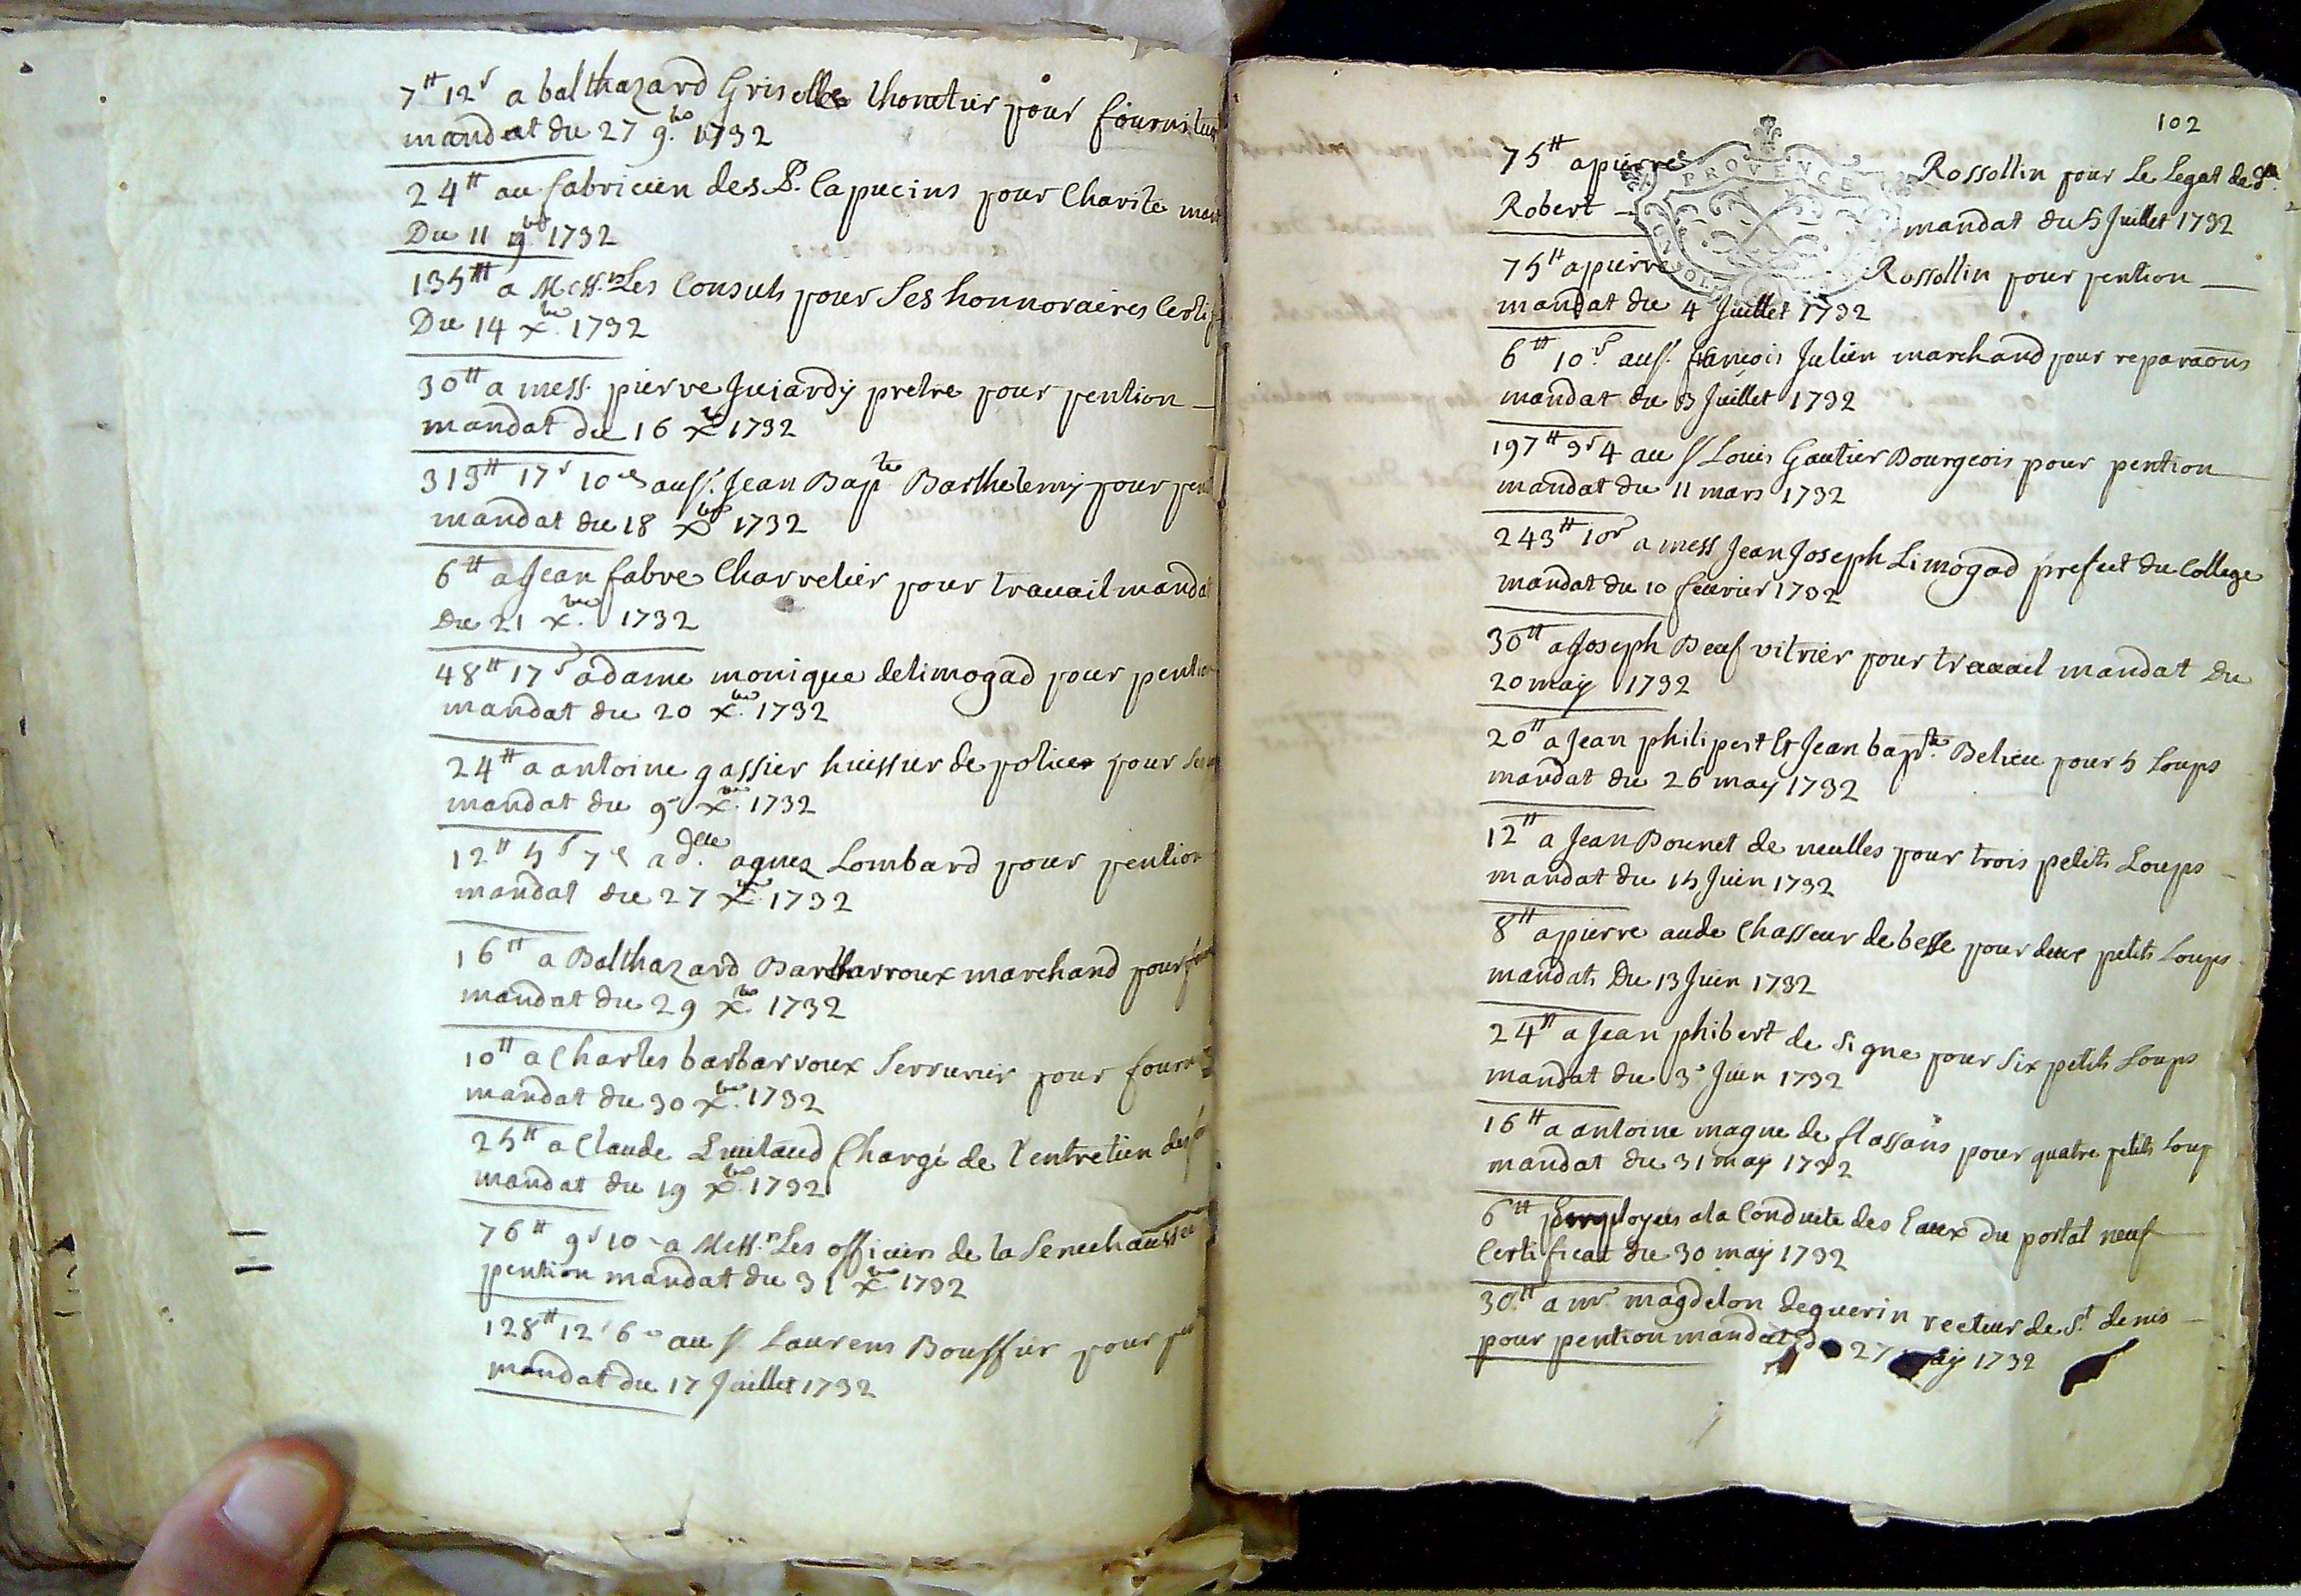 7tt 12s a balthazard Griselle pour fournitur
mandat du 27 9.bre 1732
24tt au fabricien des P. Capucins pour Charité man
Du 11 9bre 1732
135tt a Mess.rs Les Consuls pour Ses honnoraires Certif
Du 14 x.bre 1732
30tt a mess. pierre Jujardy pretre pour pention
mandat du 16 xbre 1732
313tt 17s 10d au sr. Jean Bap.te Barthelemy pour pen
mandat du 18 xbre 1732
6tt a Jean fabre Charretier pour travail manda
Du 21 x.bre 1732
48tt 17s a dame monique de limogad pour pention
mandat du 20 x.bre 1732
24tt a antoine gassier huissier de police pour
mandat du 9e x.bre 1732
12tt 5s 7d a d.elle agnes Lombard pour pention
mandat du 27 x.bre 1732
16tt a Balthazard Barbarroux marchand pour
mandat du 29 x.bre 1732
10tt a Charles barbarroux Serrurier pour fourn
mandat du 30 x.bre 1732
25tt a Claude Chargé de l'entretien des
mandat du 19 x.bre 1732
76tt 9s 10 a Mess.rs Les officiers de la Senechaussée
pention mandat du 31 x.bre 1732
128tt 12s 6d au sr. Laurens Bouffier pour
mandat du 17 Juillet 1732
102
75tt a pierre Rossollin pour Le Legat de
Robert mandat du 5 Juillet 1732
PROVENCE
75tt a pierre Rossollin pour pention
mandat du 4 Juillet 1732
6tt 10s au sr. francois Julien marchand pour reparaons
mandat du 3 Juillet 1732
197tt 3s 4 au sr Louis Gautier Bourgeois pour pention
mandat du 11 mars 1732
243tt 10s a mess Jean Joseph Limogad prefect du College
mandat du 10 feurier 1732
30tt a Joseph Beuf vitrier pour trauail mandat du
20 may 1732
20tt a Jean philipert et Jean bap.te Belieu pour 5 Loups
mandat du 26 may 1732
12tt a Jean Bonnet de neulles pour trois petits Loups
mandat du 15 Juin 1732
8tt a pierre aude Chasseur de besse pour deux petits Loups
mandat Du 13 Juin 1732
24tt a Jean phibert de Signe pour Six petits Loups
mandat du 3e Juin 1732
16tt a antoine magne de flassans pour quatre petits Loup
mandat du 31 may 1732
6tt Employés a la Conduite des Eaux du portal neuf
Certificat du 30 may 1732
30tt a mr. magdelon deguerin recteur de St. denis
pour pention mandat d 27 may 1732